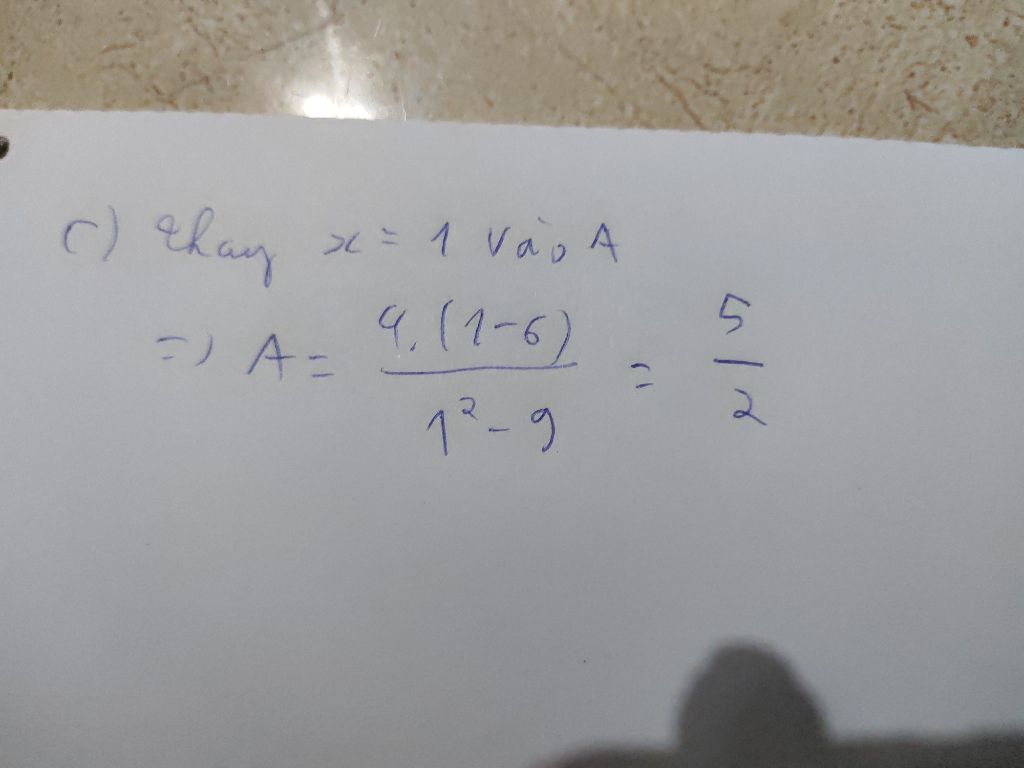 c) Thay x = 1 vào A
=) A = \frac{4.(1-6)}{1^2-9} = \frac{5}{2}